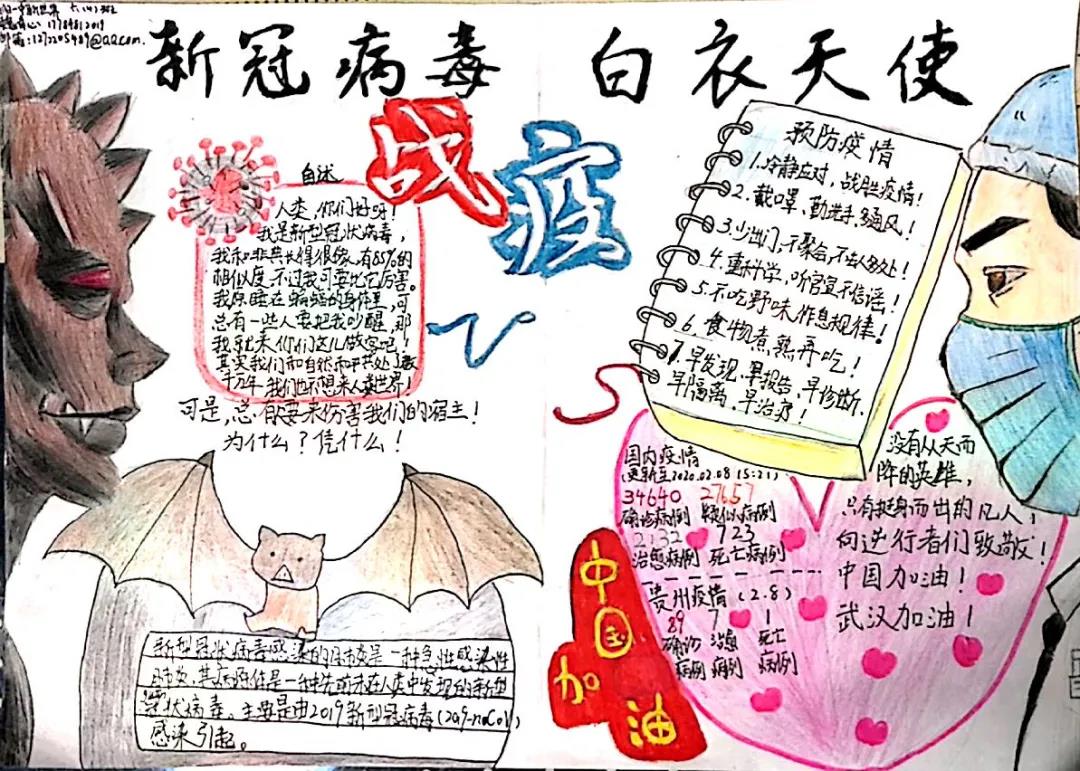 六(4)班
17784812019
邮箱:1272205489@qq.com.
新冠病毒 白衣天使
战疫
自述
人类,你们好呀!
我是新型冠状病毒,
我和非典长得很像,有85%的
相似度,不过我可要比它厉害。
我原睡在蝙蝠的身体里,可
总有一些人要把我吵醒,那
我就来你们这儿做客吧!
其实我们和自然和平共处了数
千万年,我们也不想来人类世界!
可是,总有要来伤害我们的宿主!
为什么?凭什么!
新型冠状病毒感染的肺炎是一种急性感染性
肺炎,其病原体是一种先前未在人类中发现的新型
冠状病毒。主要是由2019新型冠病毒(2019-noCoV)
感染引起。
预防疫情
1.冷静应对,战胜疫情!
2.戴口罩,勤洗手,多通风!
3.少出门,不聚会,不去人多处!
4.重科学,听官宣不信谣!
5.不吃野味作息规律!
6.食物煮熟再吃!
7.早发现,早报告,早诊断,
早隔离,早治疗!
国内疫情
(更新至2020.02.08 15:21)
34640 27657
确诊病例 疑似病例
2132 723
治愈病例 死亡病例
贵州疫情(2.8)
89 7 1
确诊 治愈 死亡
病例 病例 病例
没有从天而
降的英雄,
只有挺身而出的凡人,
向逆行者们致敬!
中国加油!
武汉加油!
中国加油